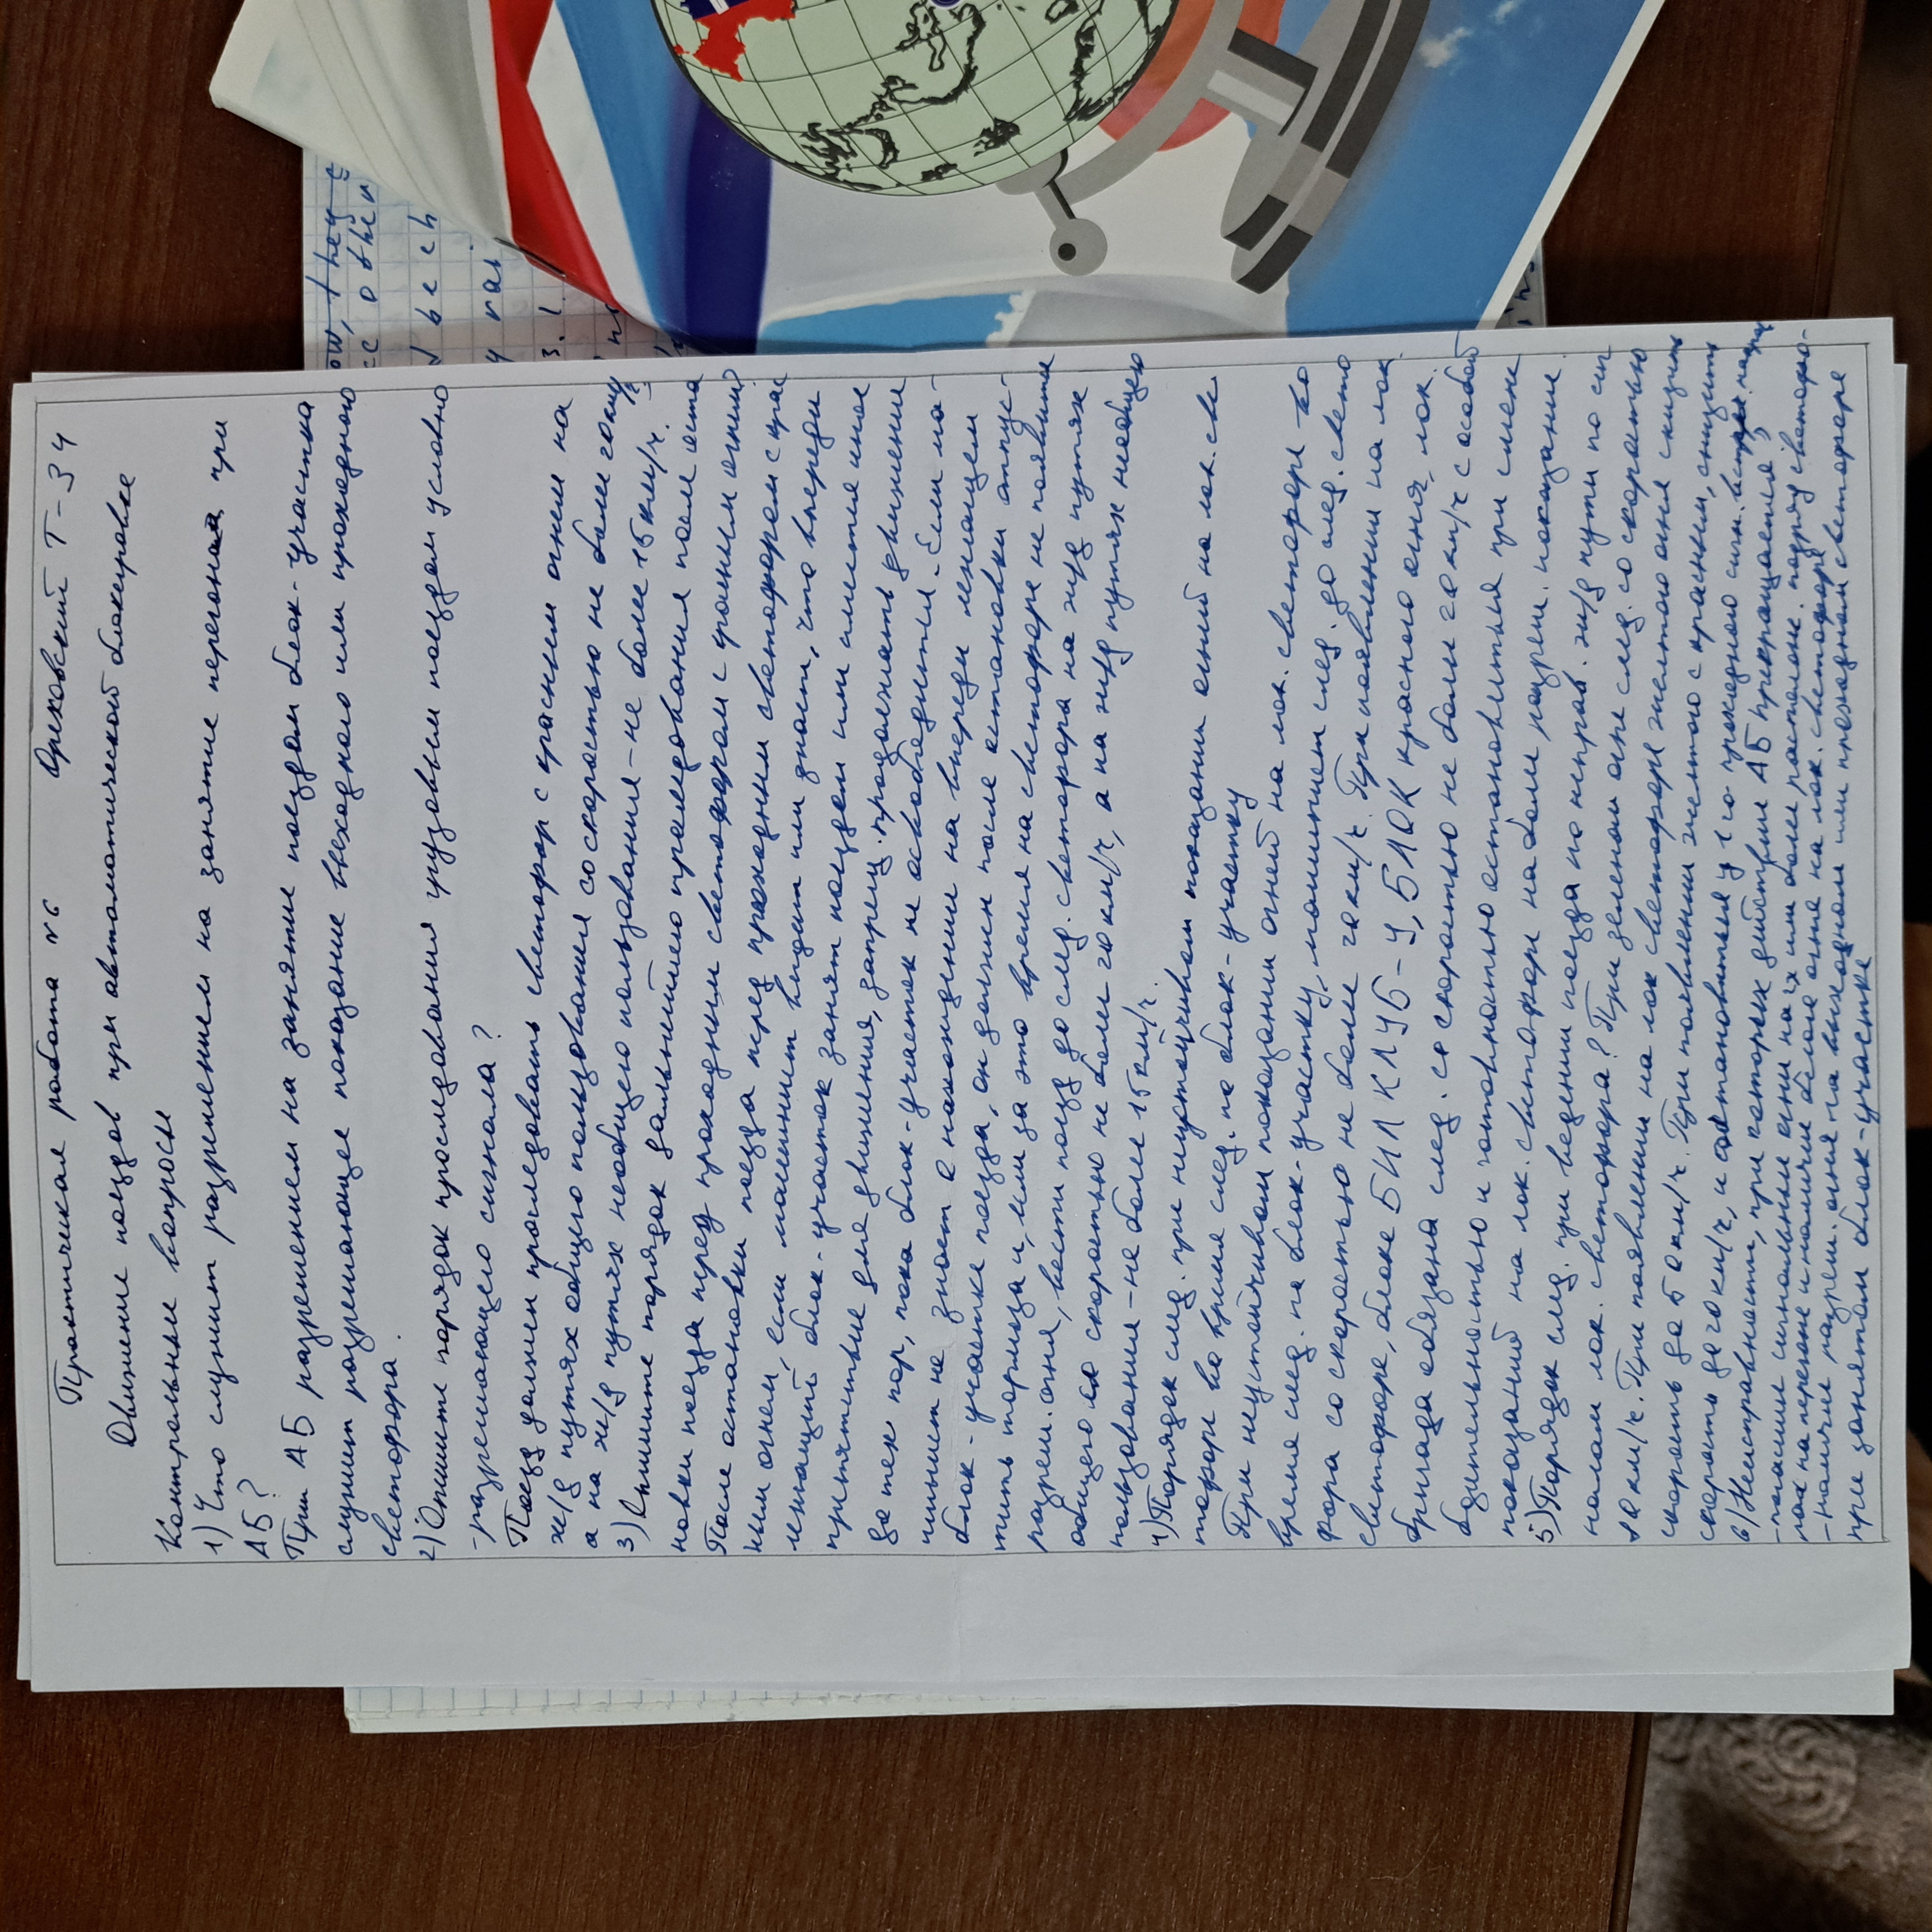 Практическая работа №6 Ореховский Т-34
Движение поездов при автоматической блокировке
Контрольные вопросы
1) Что служит разрешением на занятие перегона при
АБ?
При АБ разрешением на занятие поездом блок-участка
служит разрешающее показание выходного или проходного
светофора.
2) Опишите порядок проследования грузовым поездом условно
-разрешающего сигнала?
Поезд должен проследовать светофор с красным огнем на
ж/д путях общего пользования со скоростью не более 20км/ч
а на ж/д путях необщего пользования-не более 15км/ч.
3) Опишите порядок дальнейшего проследования после оста
новки поезда перед проходным светофором с красным огнем?
После остановки поезда перед проходным светофором с крас
ным огнем, если машинист видит или знает, что впереди
лежащий блок-участок занят поездом или имеется иное
препятствие для движения, запрещ. продолжать движение
до тех пор, пока блок-участок не освободится. Если ма-
шинист не знает о нахождении на впереди лежащем
блок-участке поезда, он должен после остановки отпус-
тить тормоза и, если за это время на светофоре не появится
разреш. огня, вести поезд до след. светофора на ж/д путях
общего со скоростью не более 20км/ч, а на ж/д путях необщего
пользования-не более 15км/ч.
4) Порядок след. при неустойчивом показании огней на лок. све
тофоре во время след. по блок-участку
При неустойчивом показании огней на лок. светофоре во
время след. по блок-участку, машинист след. до след. свето
фора со скоростью не более 40км/ч. При появлении на лок.
светофоре, блоке БИЛ КЛУБ-У, БЛОК красного огня, лок.
бригада обязана след. со скоростью не более 20км/ч с особой
бдительностью и готовностью остановиться при смене
показаний на лок. светофоре на более разреш. показание.
5) Порядок след. при ведении поезда по неправ. ж/д пути по сиг
налам лок. светофора? При зеленом огне след. со скоростью
км/ч. При появлении на лок светофоре желтого огня снизить
скорость до 50км/ч. При появлении желтого с красным, снизить
скорость до 20км/ч, и остановиться у го проходного сигн.
6) Неисправности, при которых действие АБ прекращается?
-погасшие сигнальные огни на 2х или более располож. подряд светофо-
рах на перегоне и наличие белого огня на лок. светофоре
-наличие разреш. огня на выходном или проходном светофоре
при занятом блок-участке